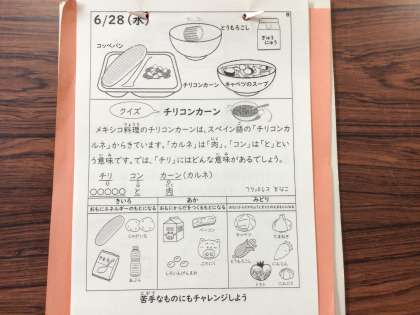 6/28(水)
8
とうもろこし
ぎゅうにゅう
コッペパン
チリコンカーン
キャベツのスープ
クイズ チリコンカーン
メキシコ料理のチリコンカーンは、スペイン語の「チリコンカ
ルネ」からきています。「カルネ」は「肉」、「コン」は「と」とい
う意味です。では、「チリ」にはどんな意味があるでしょう。
チリ コン カーン(カルネ)
○○○○○ と 肉
きいろ あか みどり
おもにエネルギーのもとになる おもにからだをつくるもとになる
じゃがいも
あぶら
ベーコン
ぶたにく
しろいんげんまめ
キャベツ
たまねぎ
とうもろこし
にんじん
トマト
にんにく
苦手なものにもチャレンジしよう